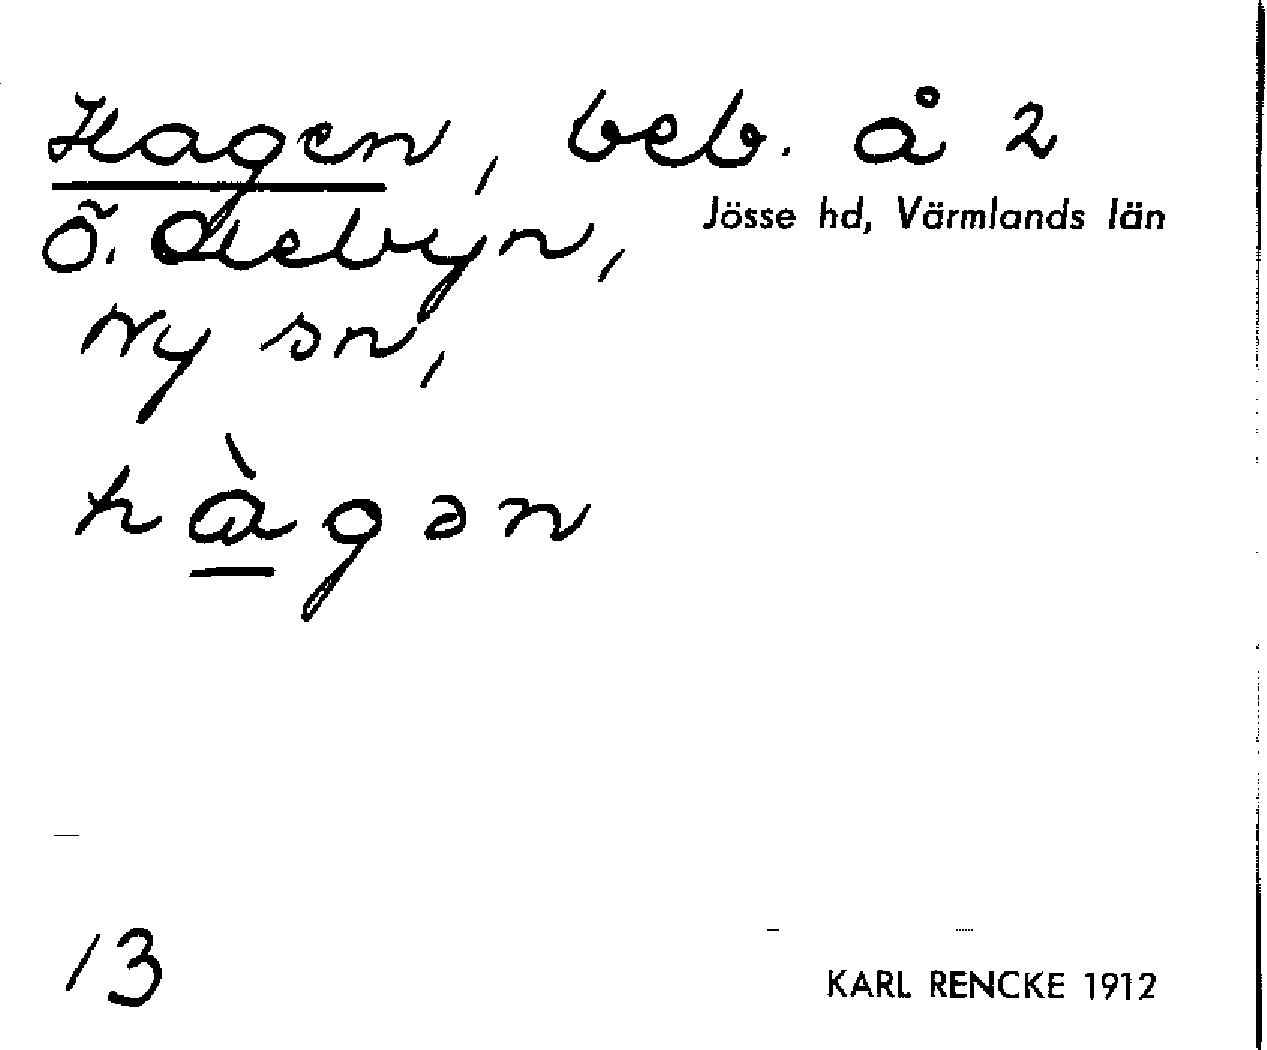 Hagen, beb. å 2
Jösse hd, Värmlands län
Ö. Deebyn,
Ny sn,
hàgən
13
KARL RENCKE 1912